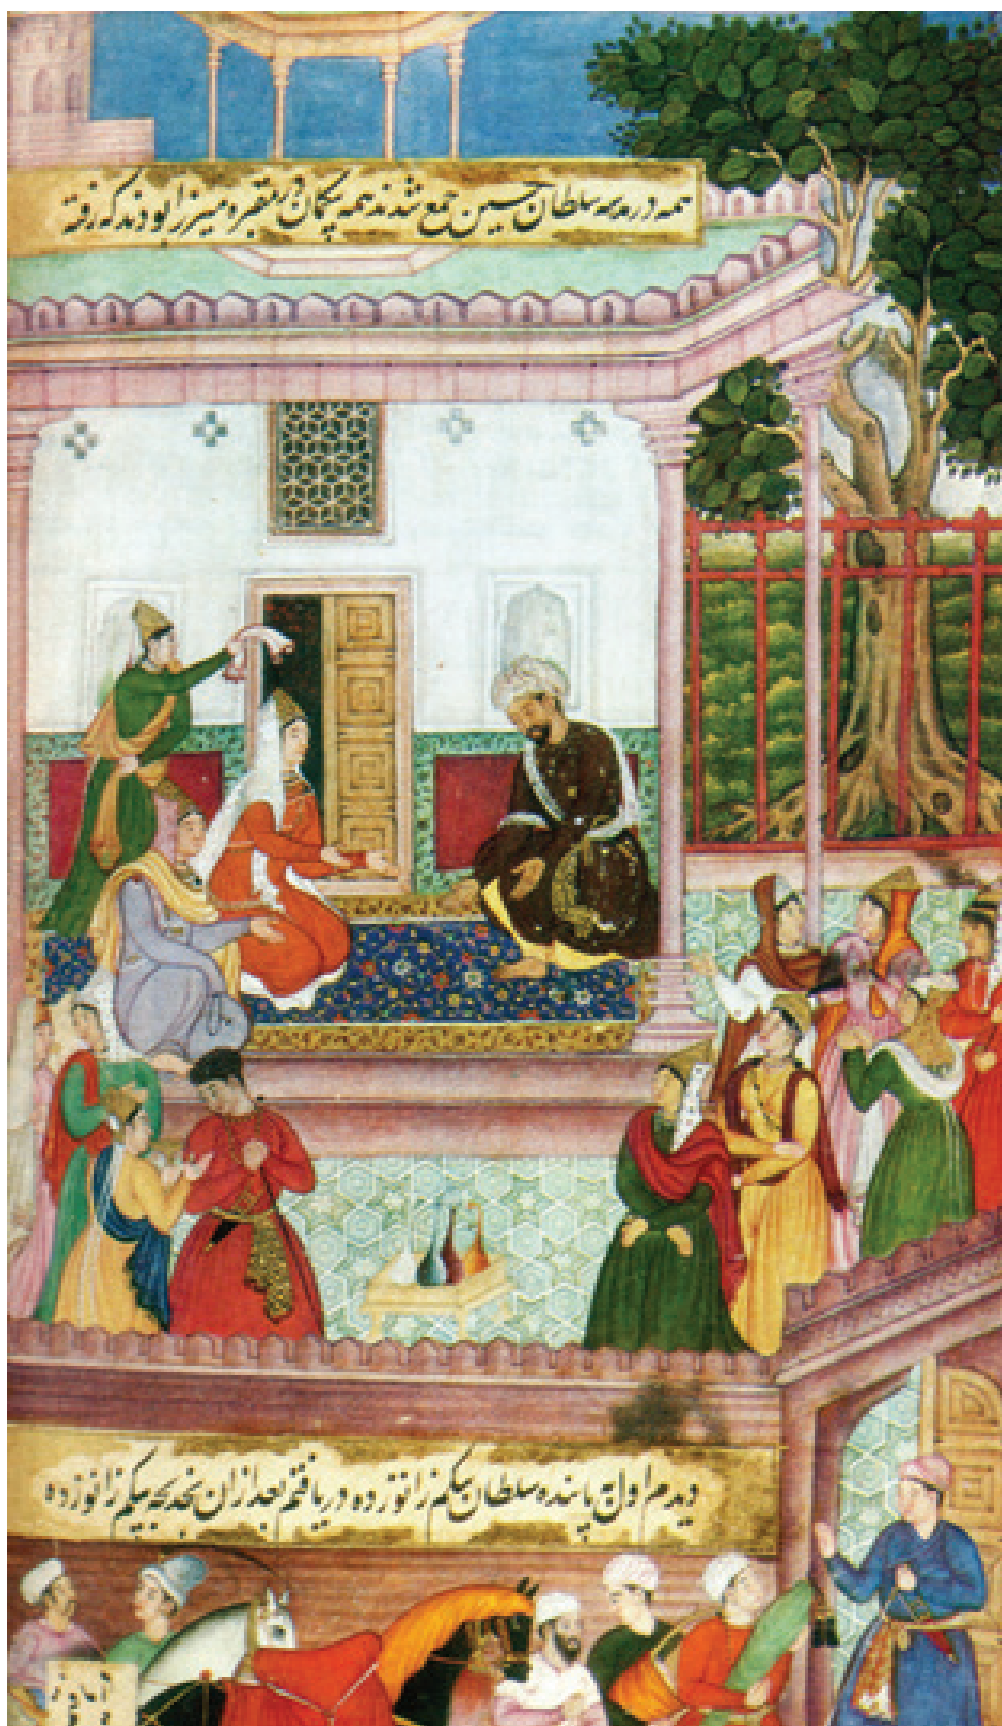 همه در مدرسه سلطان حسین جمع شدند همه بیگمان در مقبره میرزا بودند که رفته
دیدم اول به پاینده سلطان بیکم زانو زده دریافتم بعد ازان بخدیجه بیکم زانو زده